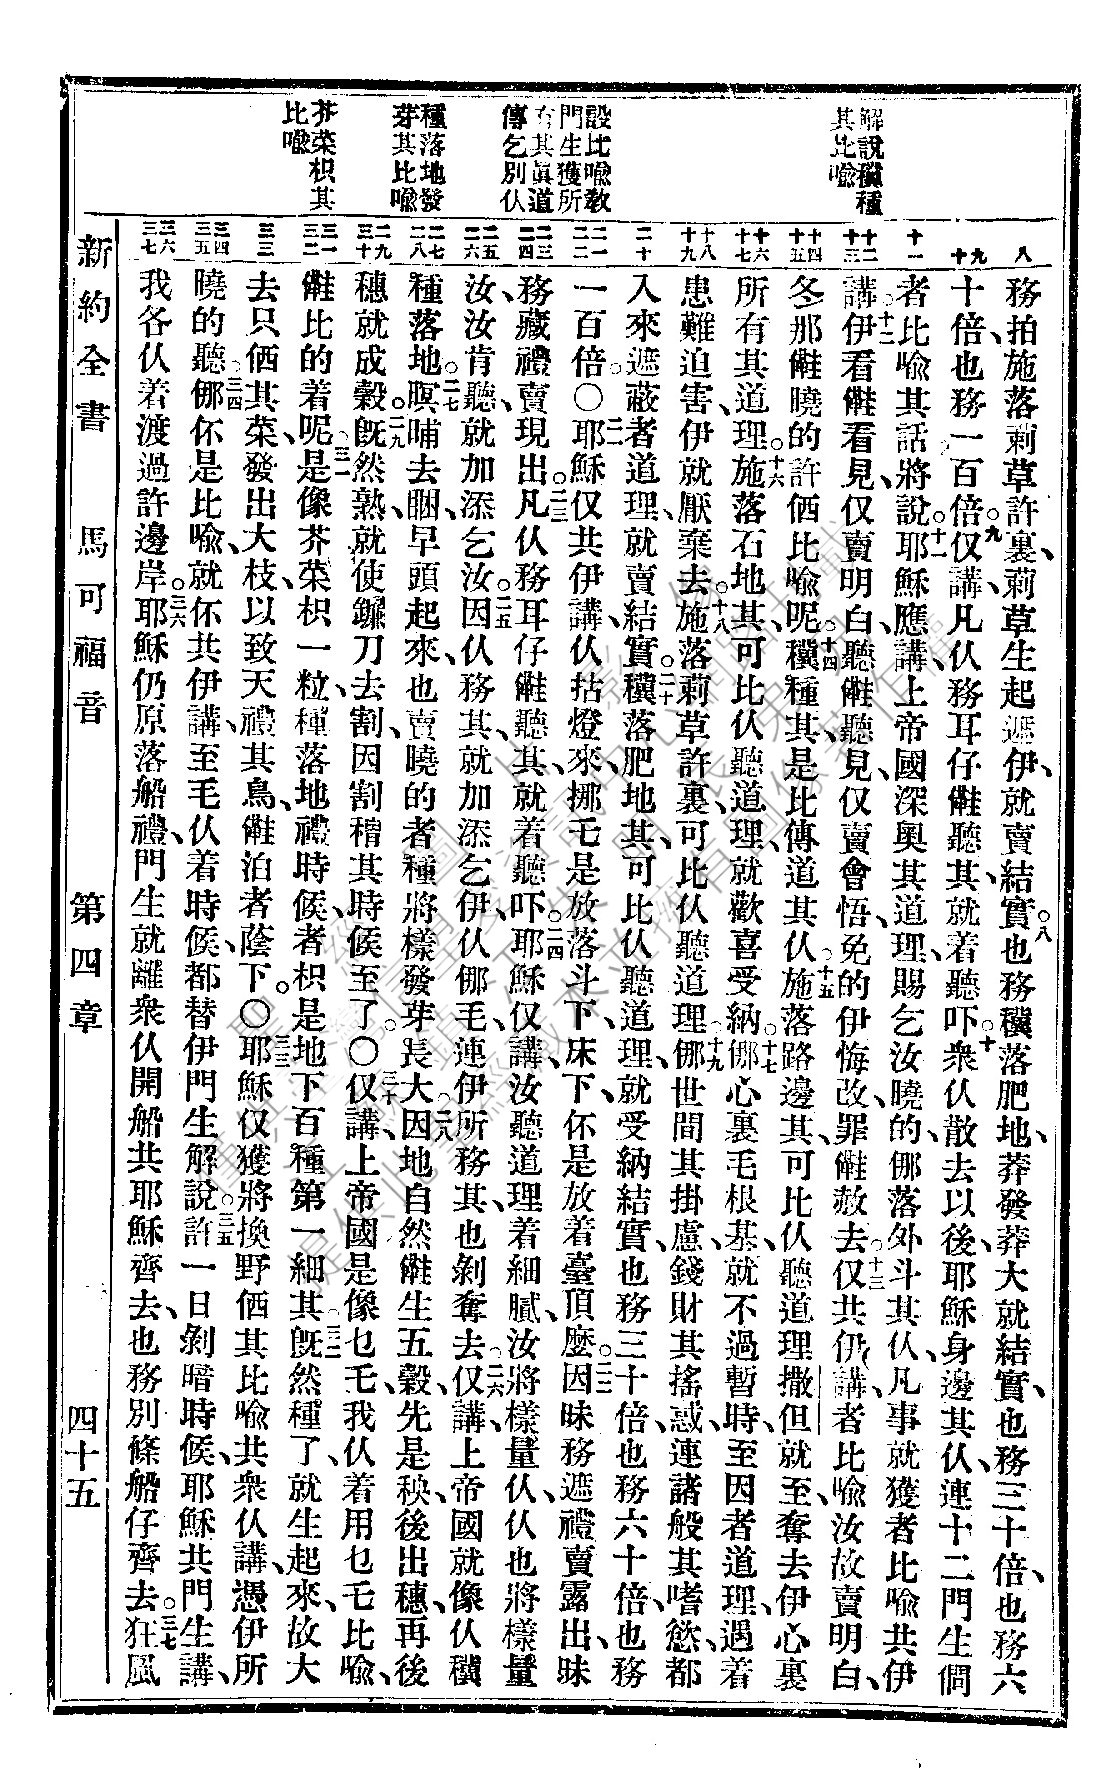 解說穳種
其比喩
設比喩敎
門生獲所
有其眞道
傳乞別仸
種落地發
芽其比喩
芥菜枳其
比喩
八
九 十
十一
十二 十三
十四 十五
十六 十七
十八 十九
二十
二一 二二
二三 二四
二五 二六
二七 二八
二九 三十
三一 三二
三三
三四 三五
三六 三七
務拍施落莿草許裏、莿草生起遮伊、就賣結實。八也務穳落肥地、莽發莽大就結實、也務三十倍、也務六
十倍、也務一百倍。九仅講、凡仸務耳仔㑗聽其、就着聽吓。十衆仸散去以後、耶穌身邊其仸、連十二門生、僩
者比喩其話將說。十一耶穌應講、上帝國深奧其道理、賜乞汝曉的、㑚落外斗其仸、凡事就獲者比喩共伊
講、十二伊看㑗看見、仅賣明白、聽㑗聽見、仅賣會悟、免的伊悔改、罪㑗赦去。十三仅共伊講、者比喩汝故賣明白、
冬那㑗曉的許㑉比喩呢。十四穳種其、是比傳道其仸。十五施落路邊其、可比仸聽道理、撒但就至、奪去伊心裏
所有其道理。十六施落石地其、可比仸聽道理、就歡喜受納。十七㑚心裏毛根基、就不過暫時、至因者道理、遇着
患難迫害、伊就厭棄去。十八施落莿草許裏、可比仸聽道理。十九㑚世間其掛慮、錢財其搖惑、連諸般其嗜慾、都
入來遮蔽者道理、就賣結實。二十穳落肥地其、可比仸聽道理、就受納結實、也務三十倍、也務六十倍、也務
一百倍。〇二一耶穌仅共伊講、仸拈燈來、挪乇是放落斗下、床下、伓是放着臺頂麽。二二因昧務遮禮賣露出、昧
務藏禮、賣現出。二三凡仸務耳仔㑗聽其、就着聽吓。二四耶穌仅講、汝聽道理着細膩、汝將樣量仸、仸也將樣量
汝、汝肯聽、就加添乞汝。二五因仸務其、就加添乞伊、仸㑚毛、連伊所務其、也剝奪去。二六仅講、上帝國就像仸穳
種落地。二七暝晡去睏、早頭起來、也賣曉的者種將樣發芽長大。二八因地自然㑗生五穀、先是秧、後出穗、再後
穗就成穀。二九旣然熟、就使鐮刀去割、因割稽其時候至了。〇三十仅講、上帝國是像乜乇、我仸着用乜乇比喩、
㑗比的着呢。三一是像芥菜枳一粒、種落地禮時候、者枳是地下百種第一細其。三二旣然種了、就生起來、故大
去只㑉其菜、發出大枝、以致天禮其鳥、㑗泊者蔭下。〇三三耶穌仅獲將換野㑉其比喩共衆仸講、憑伊所
曉的聽。三四㑚伓是比喩、就伓共伊講、至毛仸着時候、都替伊門生解說。三五許一日剝暗時候、耶穌共門生講、
我各仸着渡過許邊岸。三六耶穌仍原落船禮、門生就離衆仸、開船共耶穌齊去、也務別條船仔齊去。三七狂風
新約全書　馬可福音　第四章　四十五